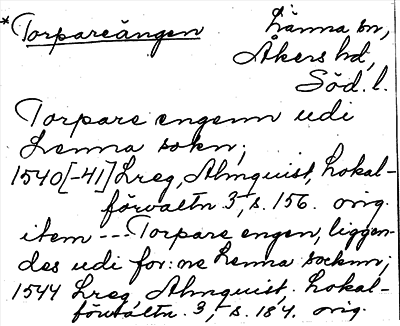 *Torpareängen Länna sn,
Åkers hd,
Söd. l.
Torpare engenn udi
Lenna sokn;
1540[-41] Lreg, Almquist, Lokal-
förvaltn. 3, s. 156. orig.
item --- Torpare engen, liggen-
des udi for:ne Lenna socknn;
1544 Lreg, Almquist, Lokal-
förvaltn. 3, s. 184. orig.